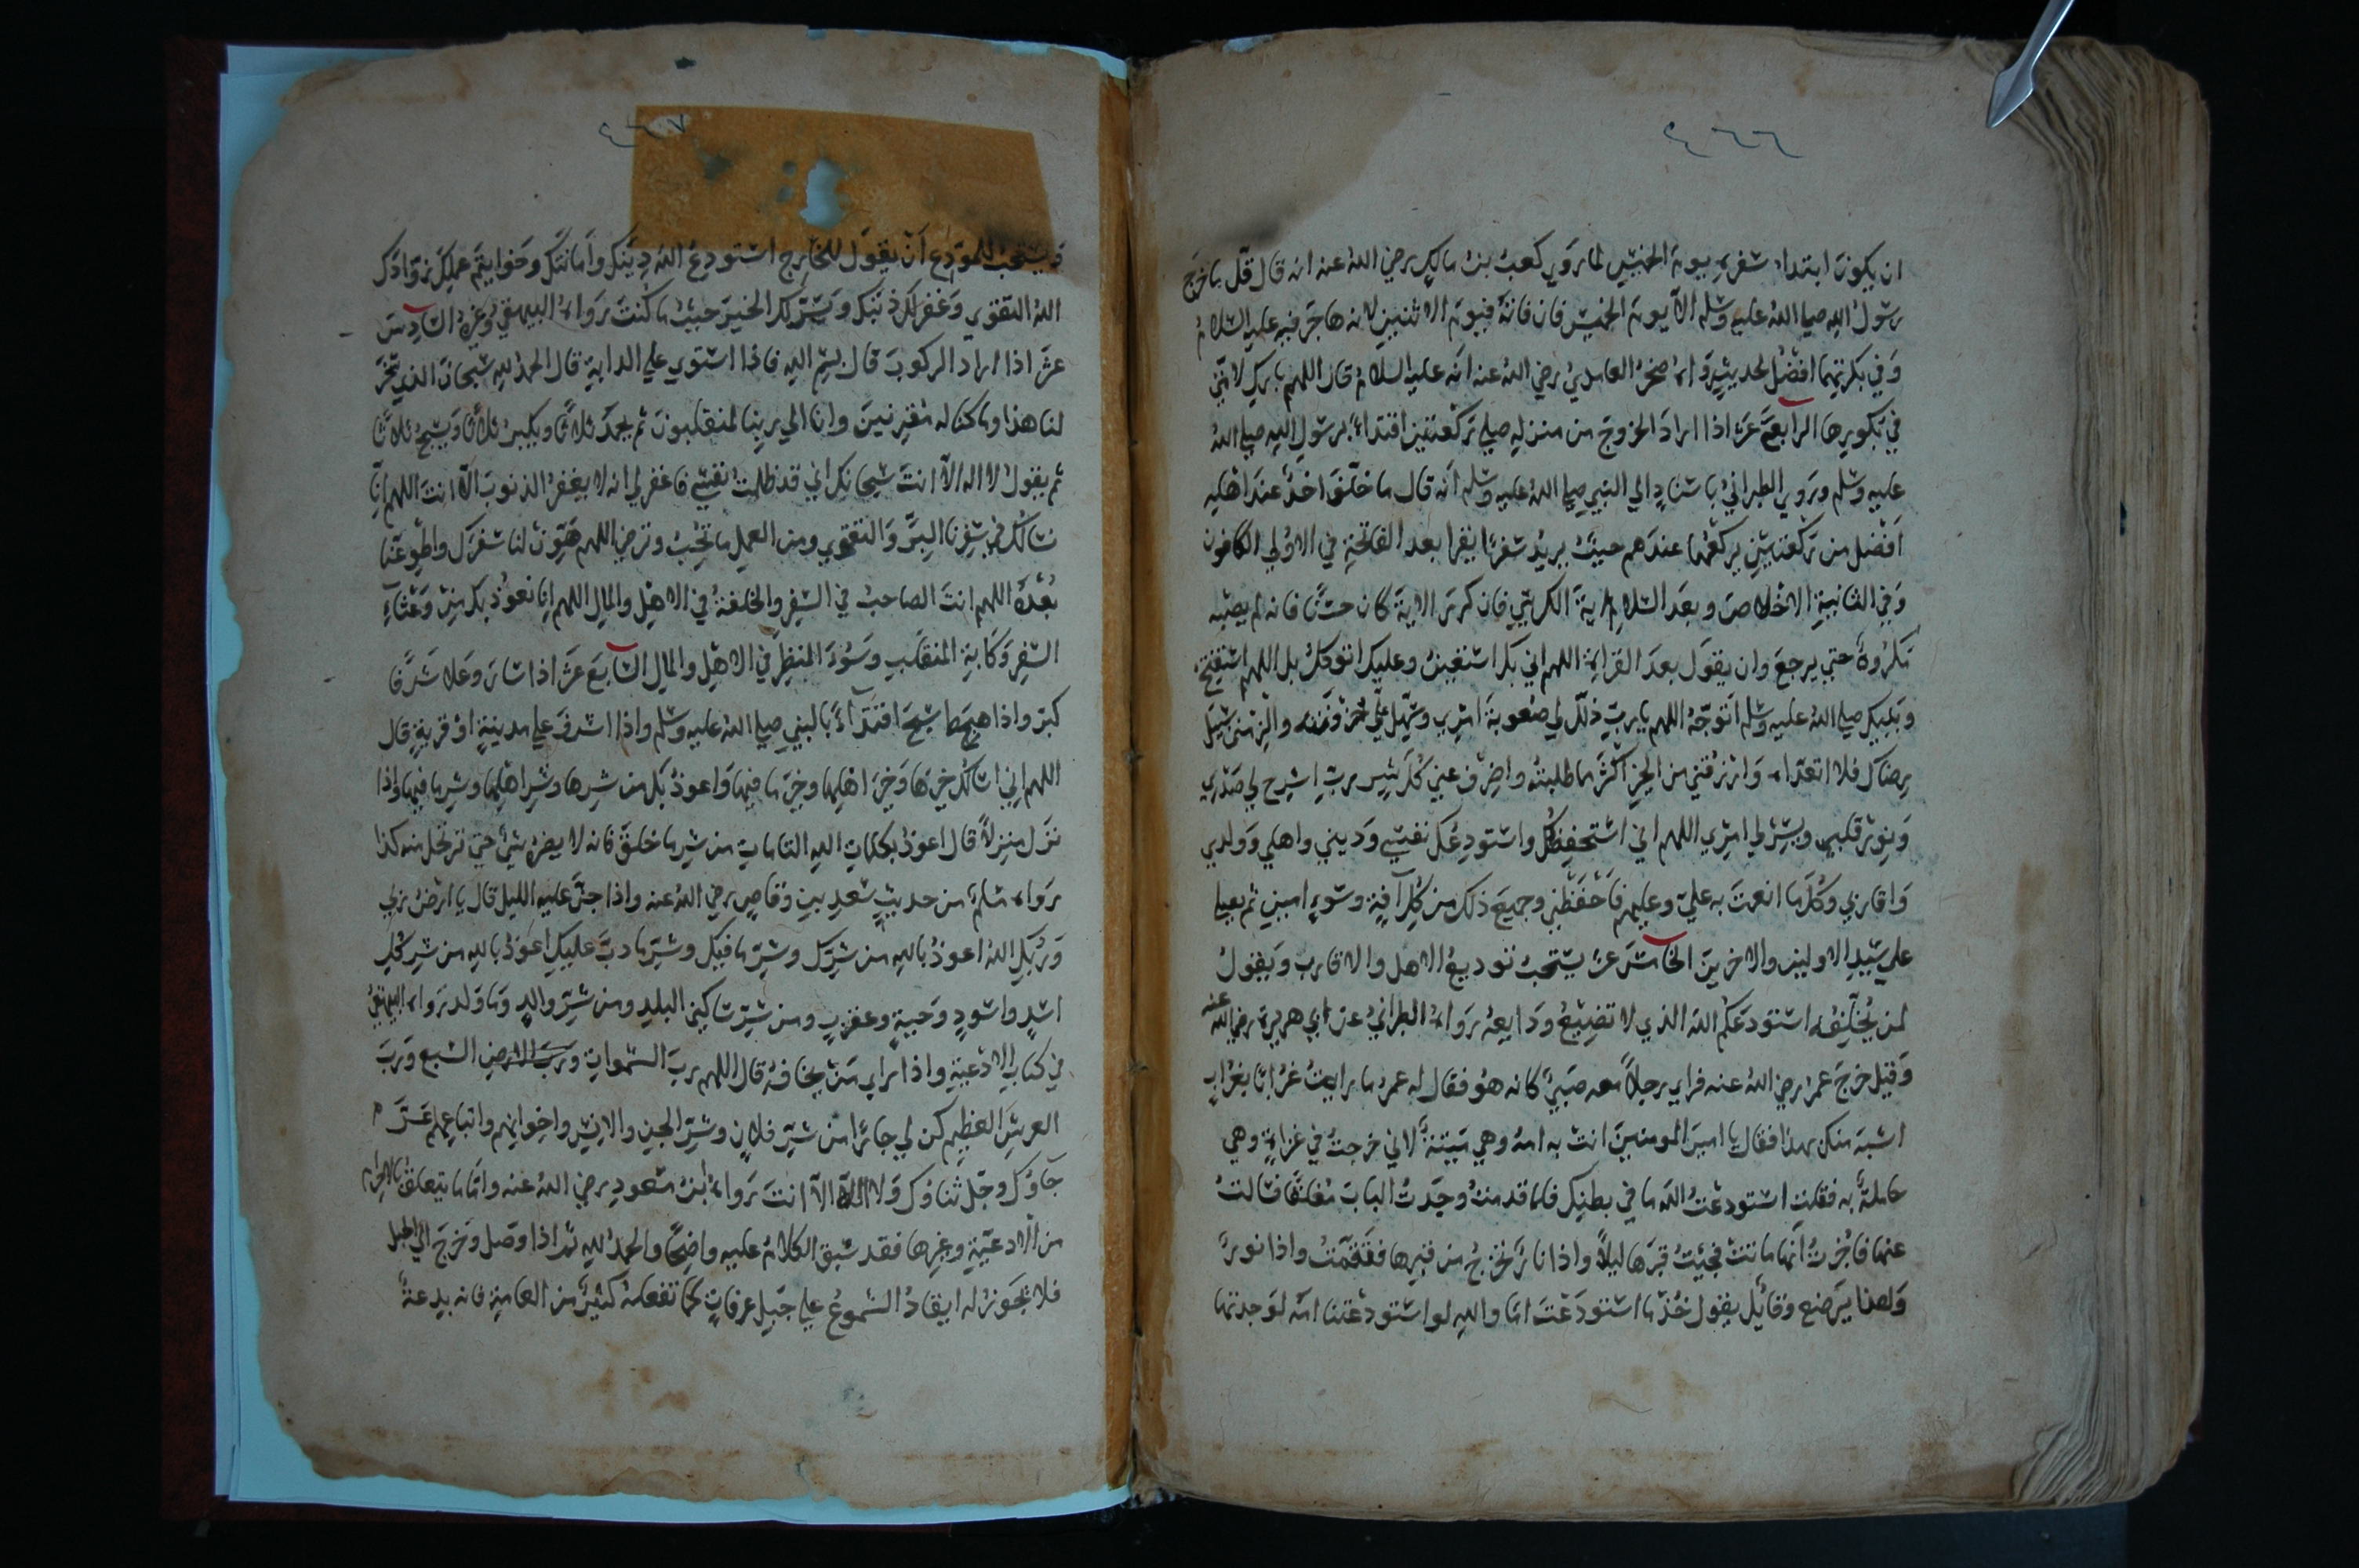 ٤٦٦
ان يكون ابتداء سفره يوم الخميس لما روي كعب بن مالك رضي الله عنه انه قال قل ما خرج
رسول الله صلي الله عليه وسلم الا يوم الخميس فان فاته فيوم الاثنين لانه هاجر فيه عليه السلام
وفي بكرتهما افضل لحديث رواه صخر العامدي رضي الله عنه انه عليه السلام قال اللهم بارك لامتي
في بكورها الرابع عشر اذا اراد الخروج من منزله صلي ركعتين اقتداء برسول الله صلي الله
عليه وسلم وروي الطبراني باسناد الي النبي صلي الله عليه وسلم انه قال ما خلف احد عند اهله
افضل من ركعتين يركعهما عندهم حين يريد سفرا يقرا بعد الفاتحة في الاولي الكافرون
وفي الثانية الاخلاص وبعد السلام اية الكرسي فان كرر الاية كان حسنا فانه لم يصبه
مكروه حتي يرجع وان يقول بعد القراة اللهم اني بك استعين وعليك اتوكل بل اللهم استفتح
وبنبيك صلي الله عليه وسلم اتوجه اللهم يارب ذلل لي صعوبة امري وسهل علي حزونته والزمني سبيل
رضاك فلا اتعداه وارزقني من الخير اكثر ما طلبته واصرف عني كل شر رب اشرح لي صدري
ونور قلبي ويسر لي امري اللهم اني استحفظك واستودعك نفسي وديني واهلي وولدي
واقاربي وكل ما انعمت به علي وعليهم فاحفظني وجميع ذلك من كل آفة وسوء امين ثم يصلي
علي سيد الاولين والاخرين الخامس عشر يستحب توديع الاهل والاقارب ويقول
لمن يخلفه استودعكم الله الذي لا تضيع ودايعه رواه الطبراني عن ابي هريرة رضي الله عنه
وقيل خرج عمر رضي الله عنه فراي رجلا معه صبي كانه هو فقال له عمر ما رايت غرابا بغراب
اشبه منك بهذا فقال يا امير المومنين اتت به امه وهي ميتة لاني خرجت في غزاة وهي
حاملة به فقلت استودعت الله ما في بطنك فلما قدمت وجدت الباب مغلقا فسالت
عنها فاخبرت انها ماتت فجيت قبرها ليلا واذا نار تخرج من قبرها فتقدمت واذا نور
ولهذا يرضع وقائل يقول خذ ما استودعت اما والله لو استودعتنا امه لوجدتها
٤٦٧
ويستحب للمودع ان يقول للخارج استودع الله دينك وامانتك وخواتيم عملك زودك
الله التقوي وغفر لك ذنبك ويسر لك الخير حيث ما كنت رواه البيهقي وغيره السادس
عشر اذا اراد الركوب قال بسم الله فاذا استوي علي الدابة قال الحمد لله سبحان الذي سخر
لنا هذا وما كنا له مقرنين وانا الي ربنا لمنقلبون ثم يحمد ثلاثا ويكبر ثلاثا ويسبح ثلاثا
ثم يقول لا اله الا انت سبحانك اني قد ظلمت نفسي فاغفر لي انه لا يغفر الذنوب الا انت اللهم انا
نسالك في سفرنا البر والتقوي ومن العمل ما تحب وترضي اللهم هون لنا سفرك واطو عنا
بعده اللهم انت الصاحب في السفر والخليفة في الاهل والمال اللهم انا نعوذ بك من وعثاء
السفر وكابة المنقلب وسوء المنظر في الاهل والمال السابع عشر اذا سار وعلا شرفا
كبر واذا هبط سبح اقتداء بالنبي صلي الله عليه وسلم واذا اشرف علي مدينة او قرية قال
اللهم اني اسالك خيرها وخير اهلها وخير ما فيها واعوذ بك من شرها وشر اهلها وشر ما فيها واذا
نزل منزلا قال اعوذ بكلمات الله التامات من شر ما خلق فانه لا يضره شئ حتي ترتحل منه كذا
رواه مسلم من حديث سعد بن وقاص رضي الله عنه واذا جن عليه الليل قال يا ارض ربي
وربك الله اعوذ بالله من شرك وشر ما فيك وشر ما دب عليك اعوذ بالله من شر كل
اسد واسود وحية وعقرب ومن شر ساكني البلد ومن شر والد وما ولد رواه البيهقي
في كتاب الادعية واذا راي من يخافه قال اللهم رب السموات ورب الارضين السبع ورب
العرش العظيم كن لي جائرا من شر فلان وشر الجن والانس واخوانهم واتباعهم عز
جارك وجل ثناؤك ولا اله الا انت رواه ابن مسعود رضي الله عنه واما ما يتعلق بالاحرام
من الادعية وغيرها فقد سبق الكلام عليه واضحا والحمد لله ثم اذا وصل وخرج الي الجبل
فلا يجوز له ايقاد الشموع علي جبل عرفات كما تفعله كثير من العامة فانه بدعة